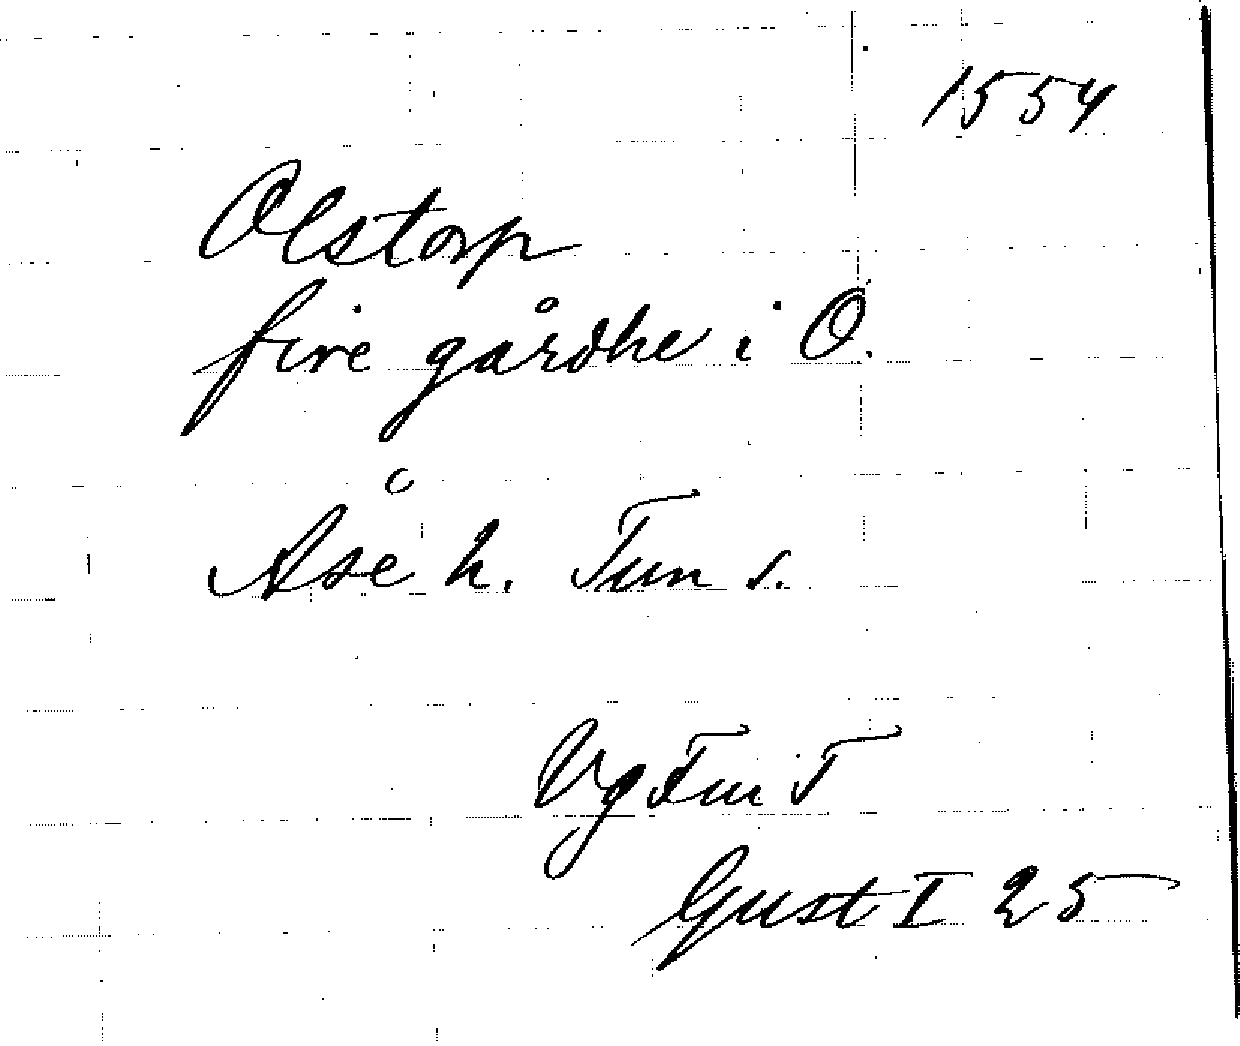 1554
Olstorp
fire gårdhe i O.
Åse h. Tun s.
Gust I 25